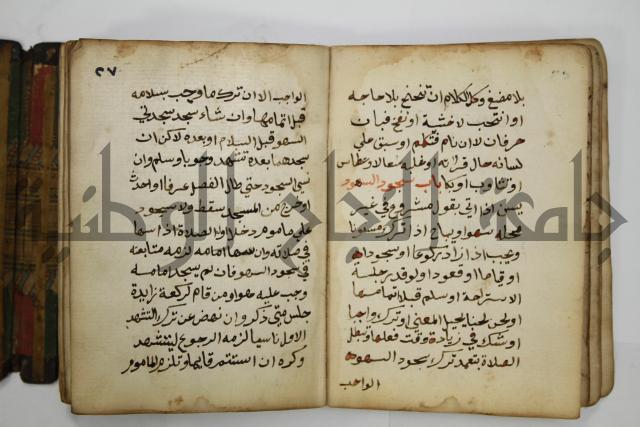 بلا مضغ وكالكلام ان تنحنح بلا حاجة
او انتحب لا خشية او نفخ فبان
حرفان لا ان نام فتكلم او سبق على
لسانه حال قراءته او غلبه سعال او عطاس
او تثاوب او بكا باب سجود السهو
يسن اذا اتى بقول مشروع في غير
محله سهوا ويباح اذا ترك مسنونا
ويجب اذا زاد ركوعا او سجودا
او قياما او قعودا ولو قدر جلسة
الاستراحة او سلم قبل اتمامها
او لحن لحنا يحيل المعنى او ترك واجبا
او شك في زيادة وقت فعلها وتبطل
الصلاة بتعمد ترك سجود السهو
الواجب
٣٧
الواجب الا ان ترك ما وجب بسلامه
قبل اتمامها وان شاء سجد سجدتي
السهو قبل السلام او بعده لكن ان
سجدهما بعده تشهد وجوبا وسلم وان
نسي السجود حتى طال الفصل عرفا او احدث
او خرج من المسجد سقط ولا سجود
على ماموم دخل اول الصلاة اذا سها
في صلاته وان سها امامه لزمه متابعته
في سجود السهو فان لم يسجد امامه
وجب عليه هو ومن قام لركعة زايدة
جلس متى ذكر وان نهض عن ترك التشهد
الاول ناسيا لزمه الرجوع ليتشهد
وكره ان استتم قايما وتلزم الماموم
جامعة النجاح الوطنية